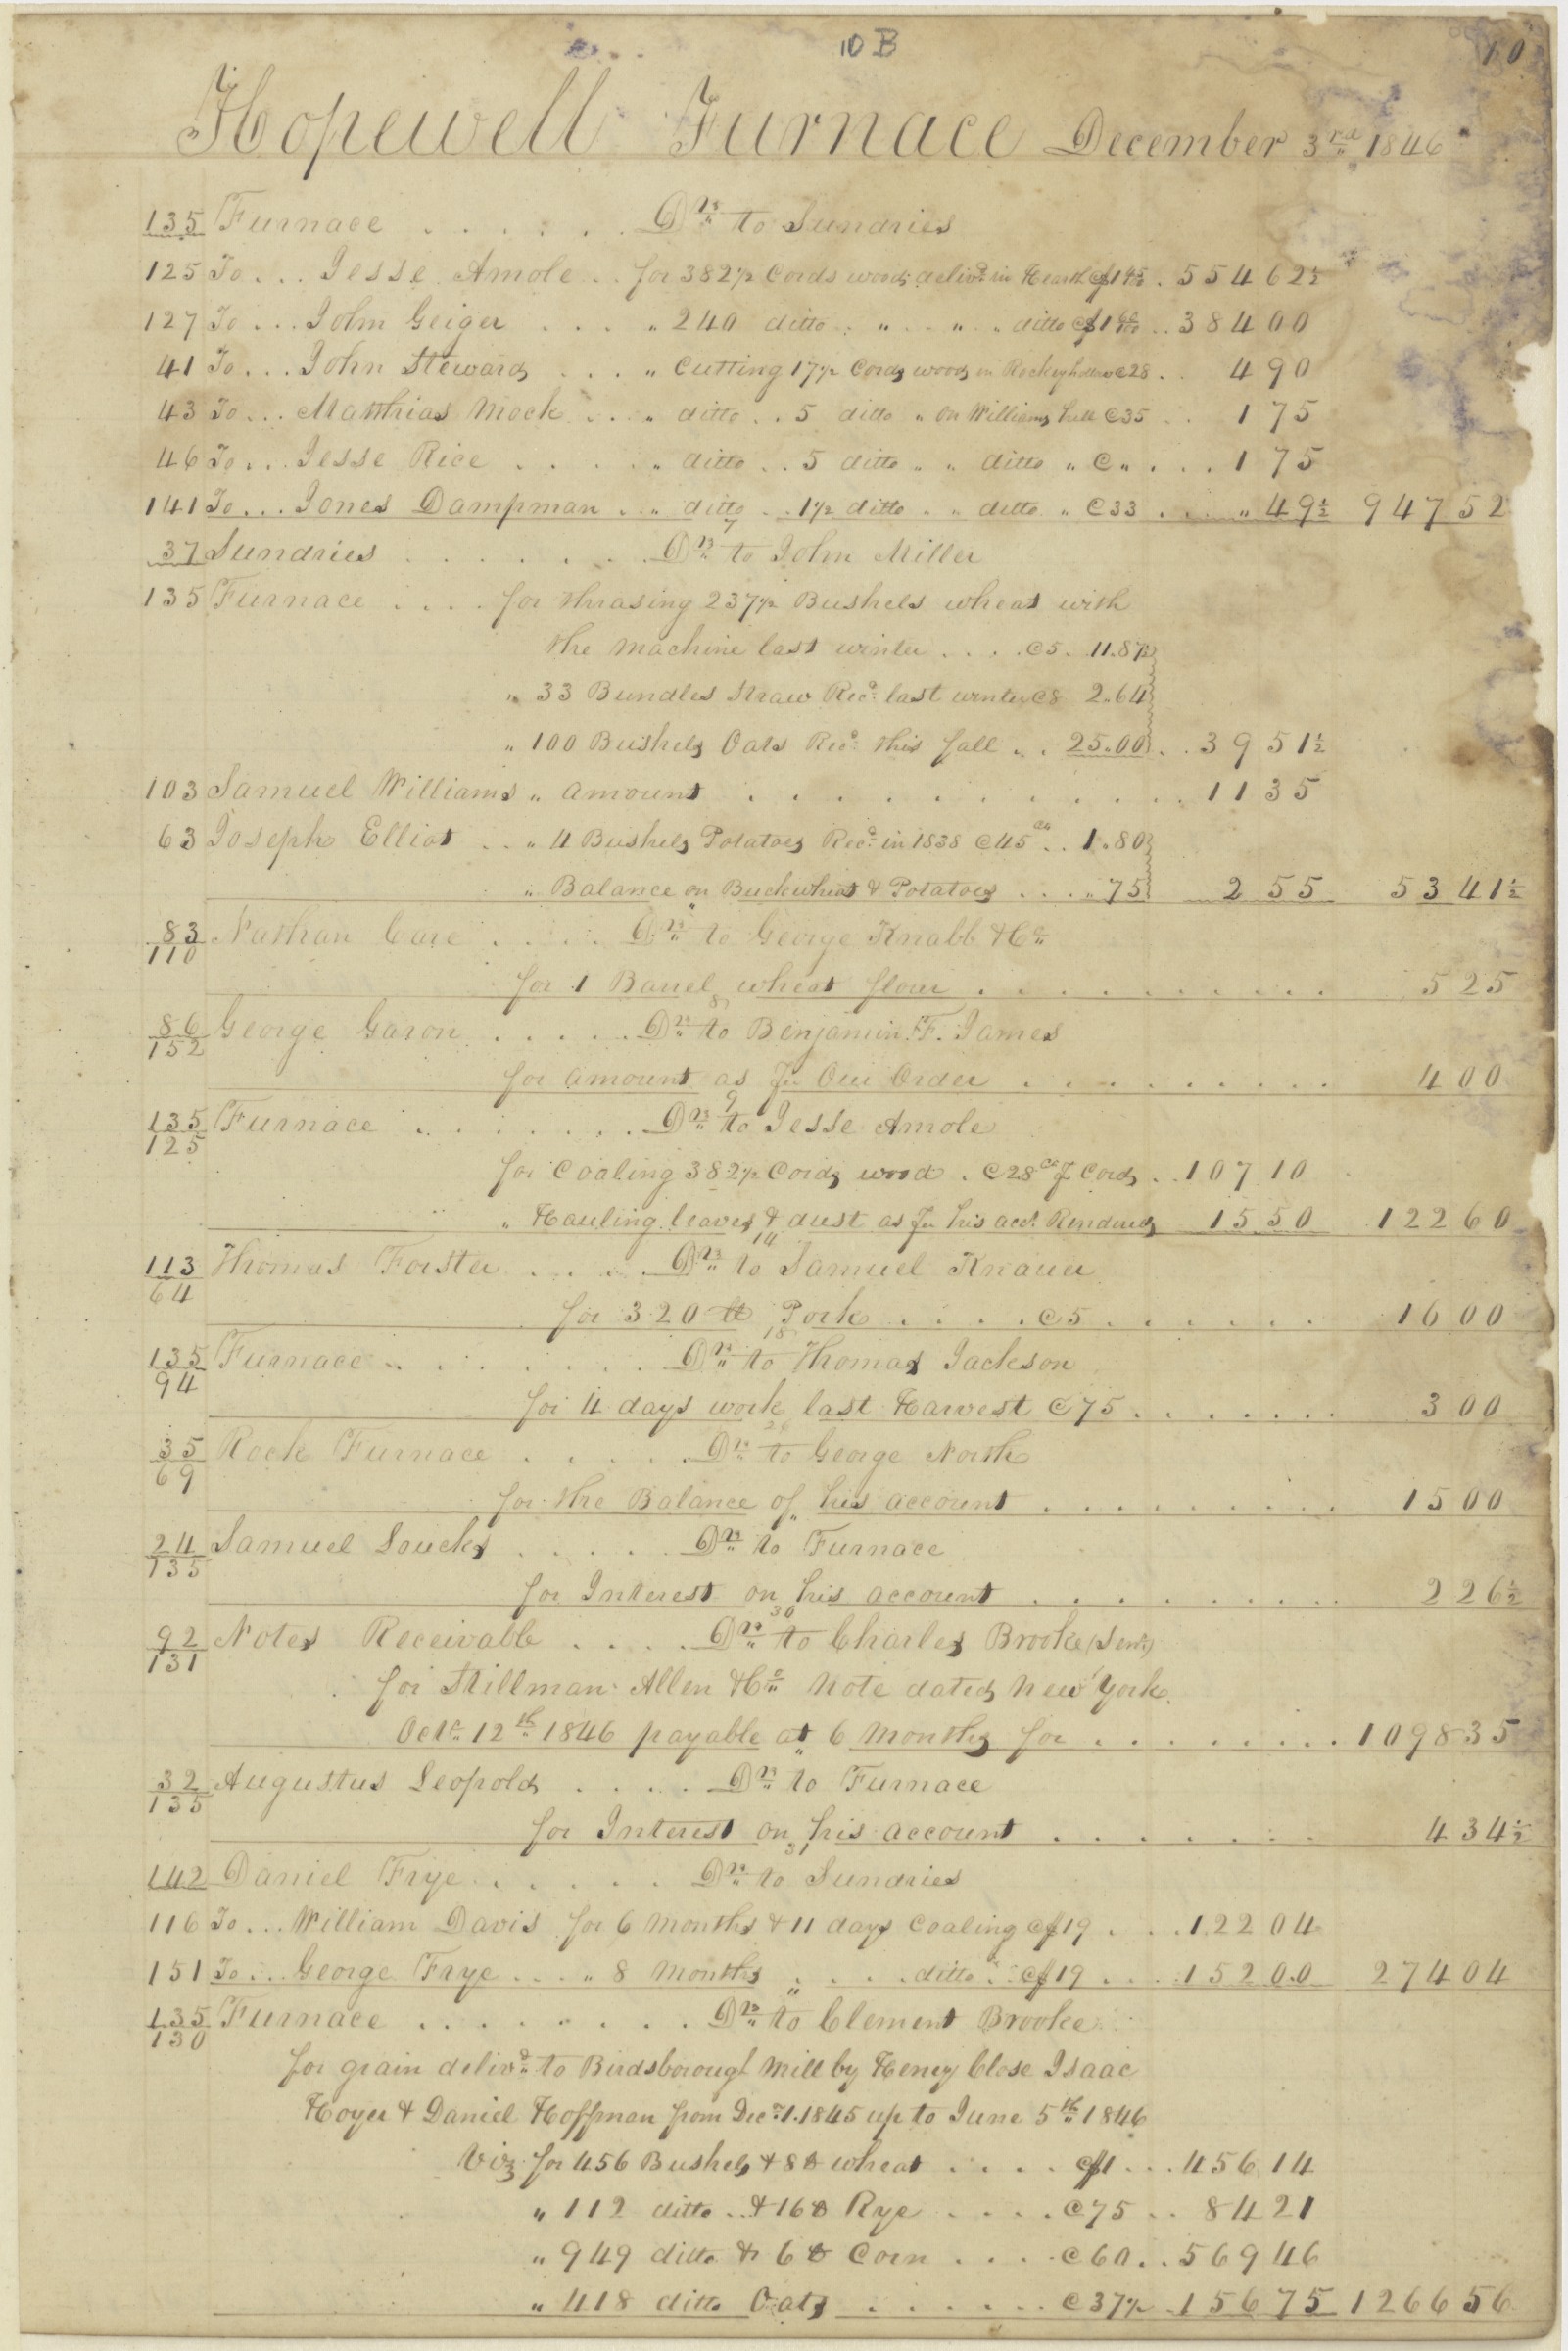 10 B
10
Hopewell Furnace December 3rd 1846
135 Furnace . . . . . . Drs to Sundries
125 To . . . Jesse Amole . . for 382 1/2 Cords wood delivd in Hearth @ $1 45 . 554 62 1/2
127 To . . . John Geiger . . . . " 240 ditto . " . . " . " ditto @ $1 60/100 . . 384 00
41 To . . . John Steward . . . " Cutting 17 1/2 Cords wood in Rockeyhollow @ 28 . . 4 90
43 To . . . Matthias Mock . . . " ditto . . 5 ditto " on Williams hill @ 35 . . 1 75
46 To . . . Jesse Rice . . . . . " ditto . . 5 ditto " " ditto " @ " . . . . 1 75
141 To . . . Jones Dampman . . " ditto . . 1 1/2 ditto . " ditto " @ 33 . . . " 49 1/2 947 52
7
37 Sundries . . . . . . . Drs to John Miller
135 Furnace . . . . for thrasing 237 1/2 Bushels wheat with
the machine last winter . . . . @ 5 . 11.87 1/2
" 33 Bundles Straw Recd last winter @ 8 2.64
" 100 Bushels Oats Recd this fall . . 25.00 . . 39 51 1/2
103 Samuel Williams " amount . . . . . . . . . . . . 11 35
63 Joseph Elliot . . " 4 Bushels Potatoes Recd in 1838 @ 45 cts . . 1.80
" Balance on Buckwheat & Potatoes . . . . " 75 2 55 53 41 1/2
"
83/110 Nathan Care . . . . . Drs to George Knabb & Co
for 1 Barrel wheat flour . . . . . . . . . . 5 25
8
86/152 George Garon . . . . . . Drs to Benjamin F. James
for amount as Per Our Order . . . . . . . . . 4 00
9
135/125 Furnace . . . . . . . . Drs to Jesse Amole
for Coaling 382 1/2 Cords wood . @ 28 cts Per Cord . . 107 10
" Hauling leaves & dust as Per his acct Rendered 15 50 122 60
14
113/64 Thomas Forster . . . . . Drs to Samuel Knauer
for 320 lb Pork . . . . @ 5 . . . . . . . 16 00
18
135/94 Furnace . . . . . . . . Drs to Thomas Jackson
for 4 days work last Harvest @ 75 . . . . . . . 3 00
26
35/69 Rock Furnace . . . . . . Drs to George North
for the Balance of his account . . . . . . . . . 15 00
"
24/135 Samuel Loucks . . . . . . Drs to Furnace
for Interest on his account . . . . . . . . . 2 26 1/2
30
92/131 Notes Receivable . . . . . Drs to Charles Brooke (Senr)
for Stillman Allen & Co Note dated New York
Octr 12th 1846 payable at 6 Months for . . . . . . . . . 1098 35
"
32/135 Augustus Leopold . . . . . Drs to Furnace
for Interest on his account . . . . . . . . 4 34 1/2
31
142 Daniel Frye . . . . . . Drs to Sundries
116 To . . . William Davis for 6 Months & 11 days Coaling @ $19 . . . 122 04
151 To . . . George Frye . . . . " 8 Months " . . . . ditto . . @ $19 . . . 152 00 274 04
"
135/130 Furnace . . . . . . . . . Drs to Clement Brooke
for grain delivd to Birdsborough Mill by Heney Close Isaac
Hoyer & Daniel Hoffman from Decr 1. 1845 up to June 5th 1846
Viz for 456 Bushels & 8 lb wheat . . . . @ $1 . . . 456 14
" 112 ditto . . & 16 lb Rye . . . . @ 75 . . 84 21
" 949 ditto & 6 lb Corn . . . . @ 60 . . 569 46
" 418 ditto Oats . . . . . . @ 37 1/2 156 75 1266 56